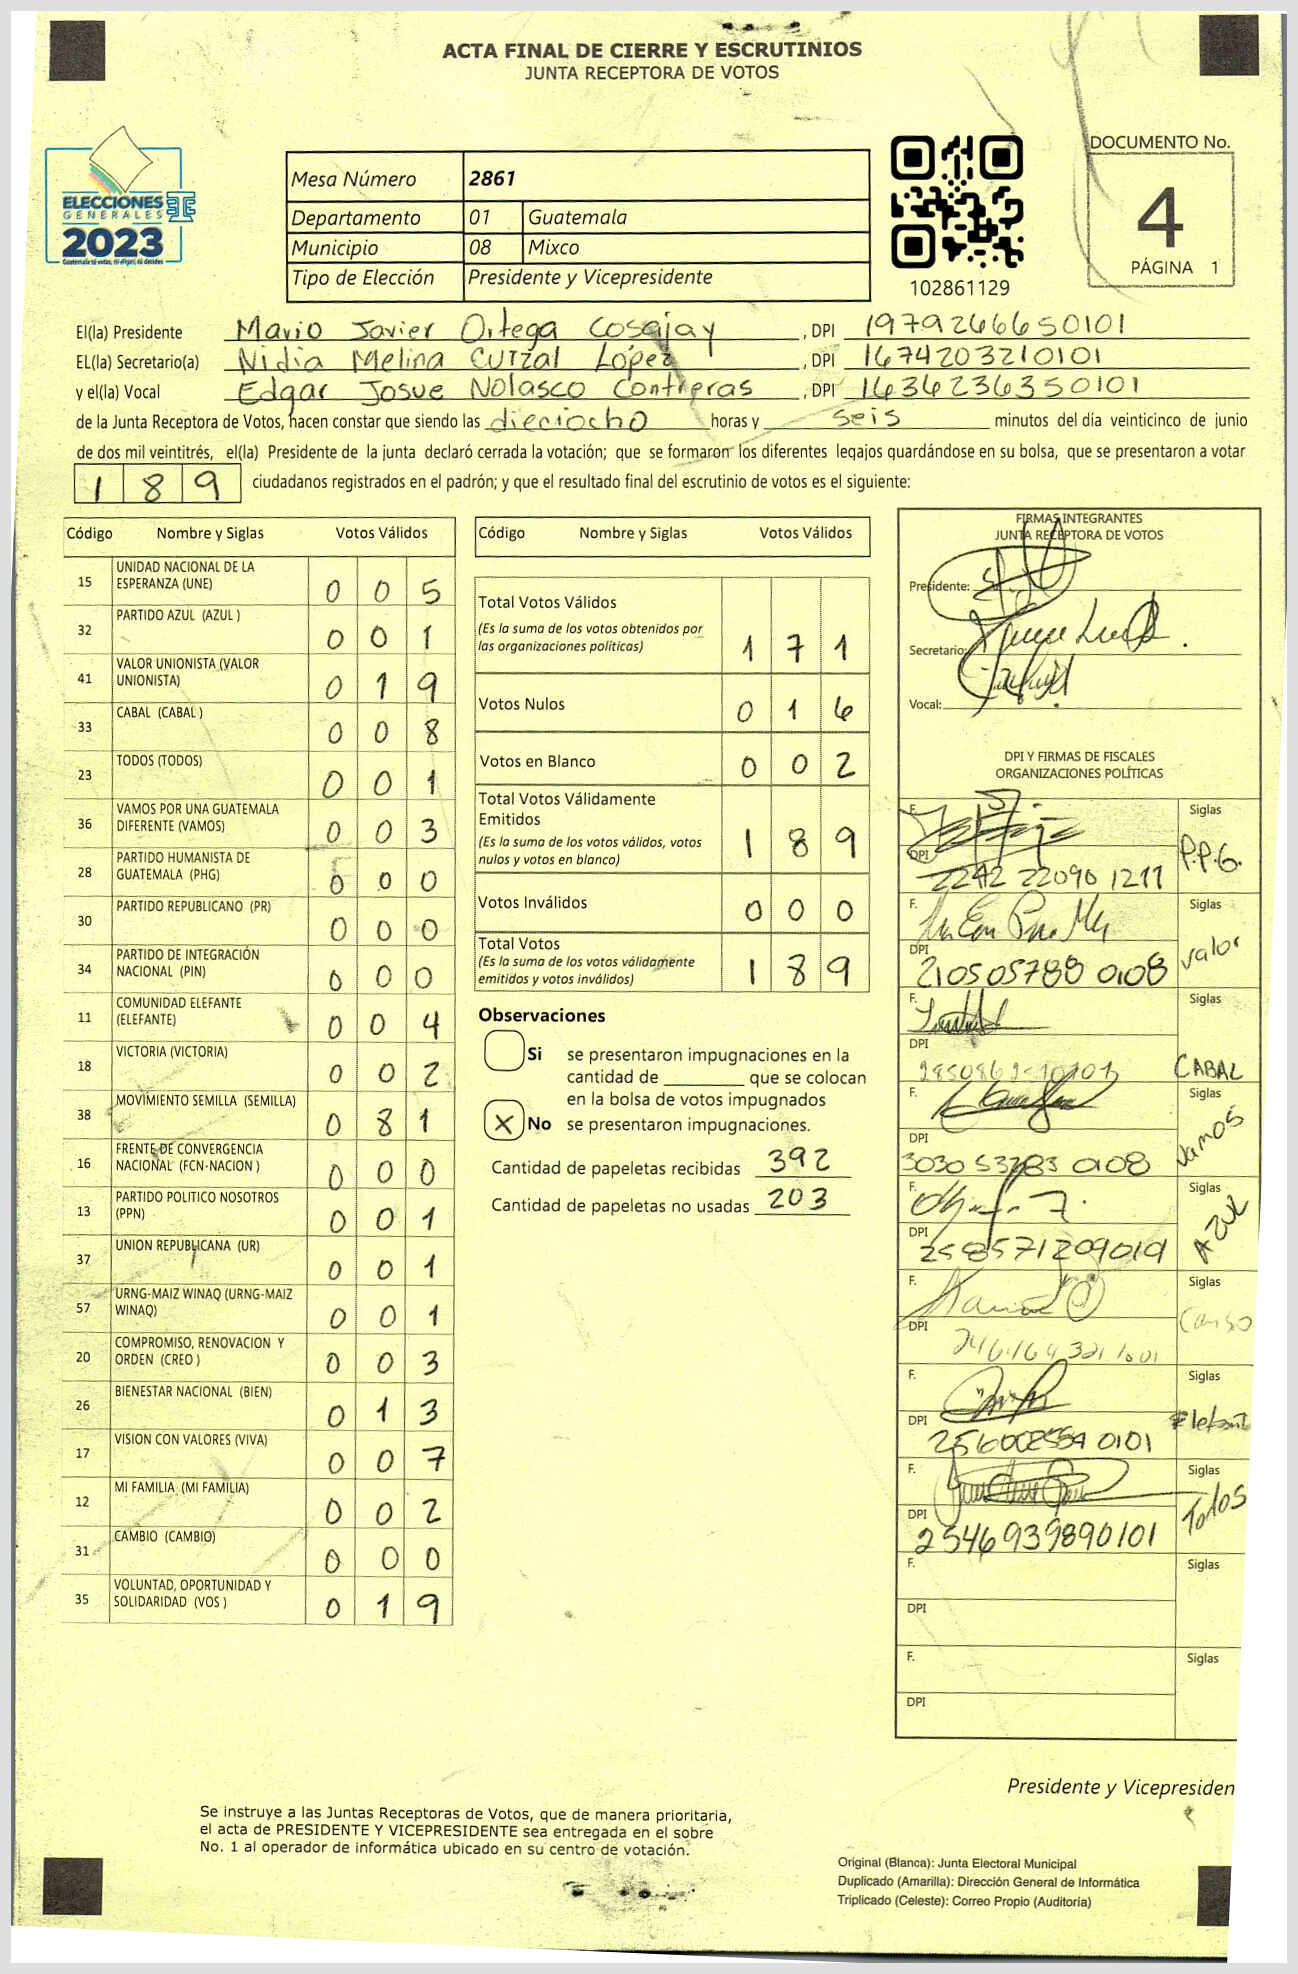 ACTA FINAL DE CIERRE Y ESCRUTINIOS
JUNTA RECEPTORA DE VOTOS
ELECCIONES
GENERALES
2023
Mesa Número 2861
Departamento 01 Guatemala
Municipio 08 Mixco
Tipo de Elección Presidente y Vicepresidente
102861129
DOCUMENTO No.
4
PÁGINA 1
El(la) Presidente Mario Javier Ortega Cosajay, DPI 1979266650101
EL(la) Secretario(a) Nidia Melina Cutzal López, DPI 1674203210101
y el(la) Vocal Edgar Josue Nolasco Contreras, DPI 1636236350101
de la Junta Receptora de Votos, hacen constar que siendo las dieciocho horas y seis minutos del día veinticinco de junio
de dos mil veintitrés, el(la) Presidente de la junta declaró cerrada la votación; que se formaron los diferentes legajos guardándose en su bolsa, que se presentaron a votar
189 ciudadanos registrados en el padrón; y que el resultado final del escrutinio de votos es el siguiente:
Código Nombre y Siglas Votos Válidos
15 UNIDAD NACIONAL DE LA ESPERANZA (UNE) 0 0 5
32 PARTIDO AZUL (AZUL ) 0 0 1
41 VALOR UNIONISTA (VALOR UNIONISTA) 0 1 9
33 CABAL (CABAL ) 0 0 8
23 TODOS (TODOS) 0 0 1
36 VAMOS POR UNA GUATEMALA DIFERENTE (VAMOS) 0 0 3
28 PARTIDO HUMANISTA DE GUATEMALA (PHG) 0 0 0
30 PARTIDO REPUBLICANO (PR) 0 0 0
34 PARTIDO DE INTEGRACIÓN NACIONAL (PIN) 0 0 0
11 COMUNIDAD ELEFANTE (ELEFANTE) 0 0 4
18 VICTORIA (VICTORIA) 0 0 2
38 MOVIMIENTO SEMILLA (SEMILLA) 0 8 1
16 FRENTE DE CONVERGENCIA NACIONAL (FCN-NACION ) 0 0 0
13 PARTIDO POLITICO NOSOTROS (PPN) 0 0 1
37 UNION REPUBLICANA (UR) 0 0 1
57 URNG-MAIZ WINAQ (URNG-MAIZ WINAQ) 0 0 1
20 COMPROMISO, RENOVACION Y ORDEN (CREO ) 0 0 3
26 BIENESTAR NACIONAL (BIEN) 0 1 3
17 VISION CON VALORES (VIVA) 0 0 7
12 MI FAMILIA (MI FAMILIA) 0 0 2
31 CAMBIO (CAMBIO) 0 0 0
35 VOLUNTAD, OPORTUNIDAD Y SOLIDARIDAD (VOS ) 0 1 9
Código Nombre y Siglas Votos Válidos
Total Votos Válidos
(Es la suma de los votos obtenidos por
las organizaciones políticas) 1 7 1
Votos Nulos 0 1 6
Votos en Blanco 0 0 2
Total Votos Válidamente
Emitidos
(Es la suma de los votos válidos, votos
nulos y votos en blanco) 1 8 9
Votos Inválidos 0 0 0
Total Votos
(Es la suma de los votos válidamente
emitidos y votos inválidos) 1 8 9
Observaciones
Si se presentaron impugnaciones en la
cantidad de ________ que se colocan
en la bolsa de votos impugnados
X No se presentaron impugnaciones.
Cantidad de papeletas recibidas 392
Cantidad de papeletas no usadas 203
FIRMAS INTEGRANTES
JUNTA RECEPTORA DE VOTOS
Presidente:
Secretario:
Vocal:
DPI Y FIRMAS DE FISCALES
ORGANIZACIONES POLÍTICAS
F. Siglas
DPI P.P.G.
F. Siglas
DPI 210505788 0108 Valor
F. Siglas
DPI CABAL
F. Siglas
DPI Vamos
F. Siglas
DPI AZUL
F. Siglas
DPI
F. Siglas
DPI
F. Siglas
DPI 2546939890101 Todos
F. Siglas
DPI
F. Siglas
DPI
Presidente y Vicepresiden
Se instruye a las Juntas Receptoras de Votos, que de manera prioritaria,
el acta de PRESIDENTE Y VICEPRESIDENTE sea entregada en el sobre
No. 1 al operador de informática ubicado en su centro de votación.
Original (Blanca): Junta Electoral Municipal
Duplicado (Amarilla): Dirección General de Informática
Triplicado (Celeste): Correo Propio (Auditoría)